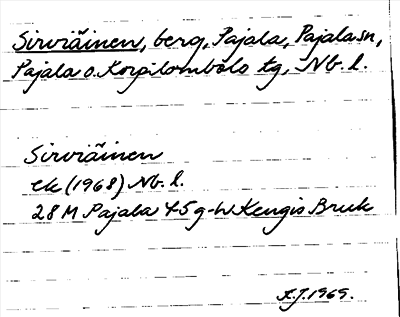 Sirviäinen, berg, Pajala, Pajala sn,
Pajala o. Korpilombolo tg, Nb. l.
Sirviäinen
ek (1968) Nb. l.
28 M Pajala 4-5 g-h Kengis Bruk
A.J. 1969.